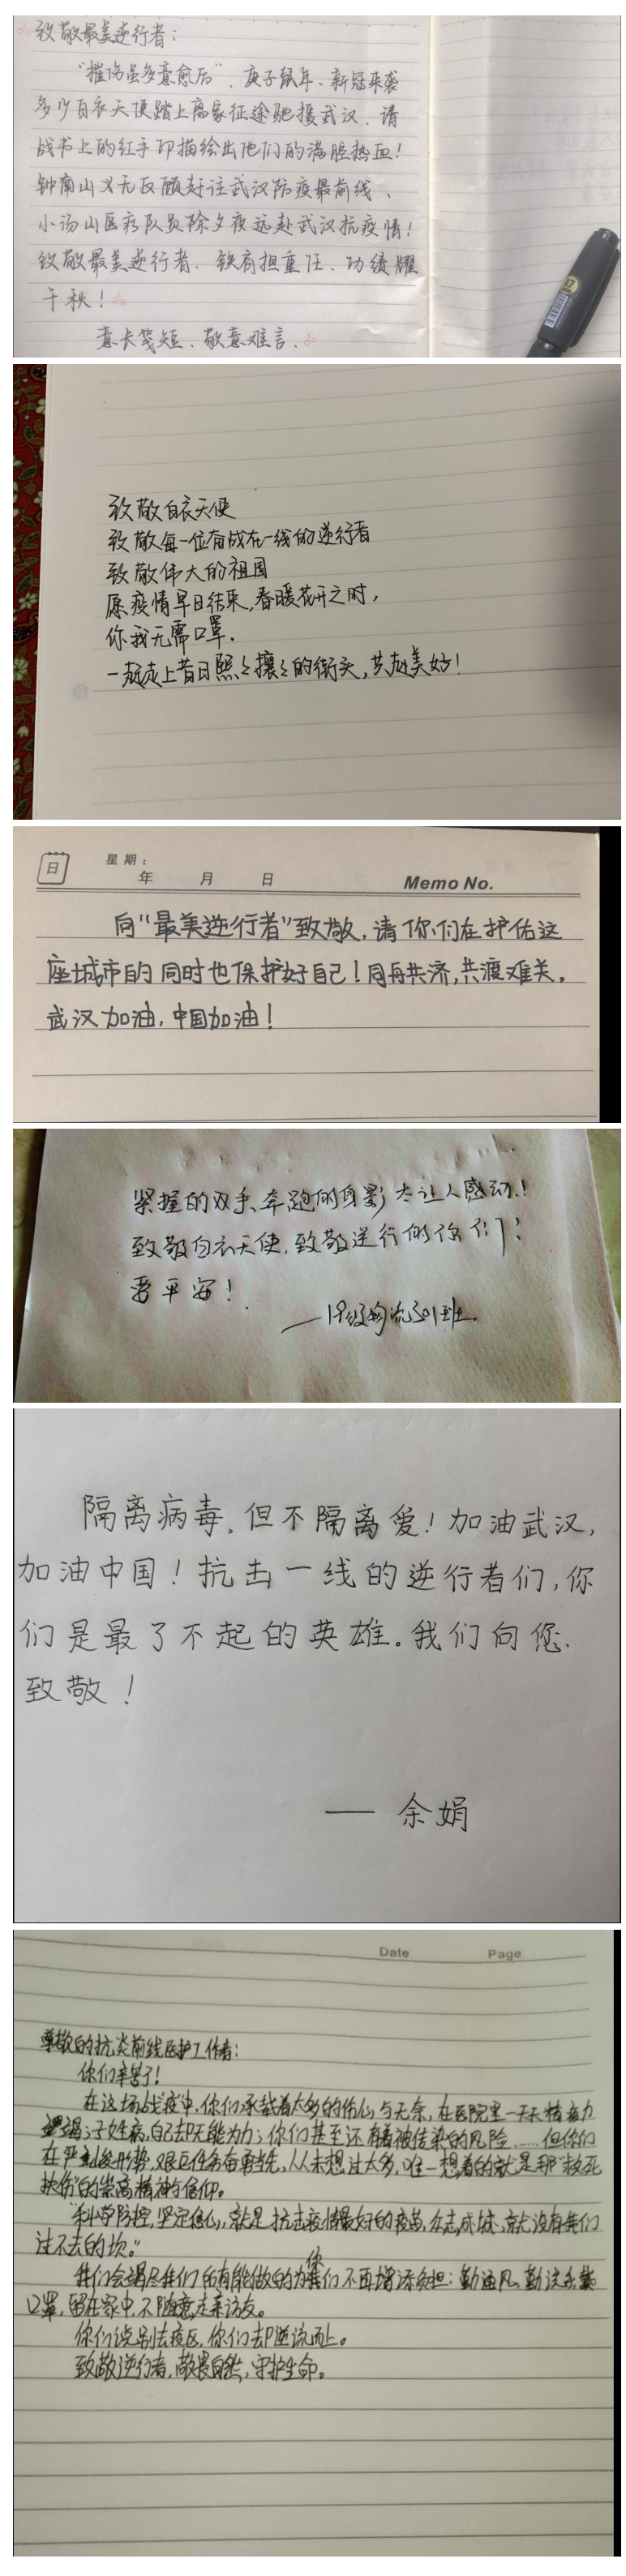 致敬最美逆行者：
“摧伤虽多意愈厉”，庚子鼠年、新冠来袭
多少白衣天使踏上离家征途驰援武汉，请
战书上的红手印描绘出他们的满腔热血！
钟南山义无反顾赶往武汉防疫最前线、
小汤山医疗队员除夕夜远赴武汉抗疫情！
致敬最美逆行者、铁肩担重任、功绩耀
千秋！
意长笺短、敬意难言.
致敬白衣天使
致敬每一位奋战在一线的逆行者
致敬伟大的祖国
愿疫情早日结束,春暖花开之时，
你我无需口罩.
一起走上昔日熙々攘々的街头,共赴美好！
日
星期：
年 月 日
Memo No.
向“最美逆行者”致敬，请你们在护佑这
座城市的同时也保护好自己！同舟共济,共渡难关。
武汉加油,中国加油！
紧握的双手、奔跑的身影太让人感动！
致敬白衣天使,致敬逆行的你们！
要平安！
——19级物流301班.
隔离病毒,但不隔离爱！加油武汉,
加油中国！抗击一线的逆行者们,你
们是最了不起的英雄。我们向您
致敬！
—— 余娟
Date Page
尊敬的抗炎前线医护工作者：
你们辛苦了！
在这场战疫中,你们承载着太多的伤心与无奈,在医院里一天天精疲力
竭；子女生病,自己却无能为力；你们甚至还有着被传染的风险……但你们
在严峻形势,艰巨任务奋勇当先,从未想过太多,唯一想着的就是那“救死
扶伤”的崇高精神与信仰。
“科学防控,坚定信心,就是抗击疫情最好的疫苗,众志成城,就没有我们
过不去的坎。”
我们会竭尽我们所有能做的为你们不再增添负担：勤通风,勤洗手,戴
口罩,留在家中,不随意走亲访友。
你们说别去疫区,你们却逆流而上。
致敬逆行者,敬畏自然,守护生命。